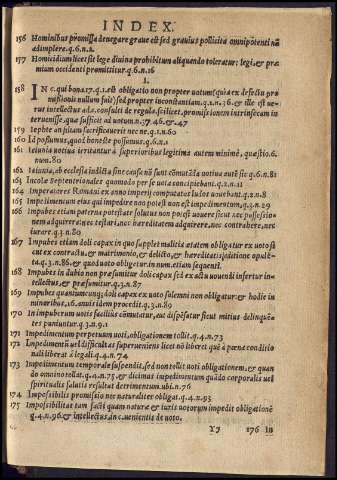 INDEX.
156 Hominibus promissa denegare graue est sed grauius pollicita omnipotenti nõ
adimplere.q.6.n.2.
157 Homicidium licet sit lege diuina prohibitum aliquando toleratur: legi,& præ
mium occidenti promittitur.q.6.n.16
I.
158 IN c.qui bona.17.q.1.est obligatio non propter uotum(quia ex defectu pro
nuſsionis nullum fuit)sed propter inconstantiam.q.1.n.36.& ille est ue-
rus intellectus ad c.consulti de regula.scilicet,promissionem intrinsecam in
teruenisse,quæ sufficit ad uotum.n.37 46.& 47
159 Iephte an filiam sacrificauerit nec ne.q.1.n.60
160 Id possumus,quod honeste possumus.q.6.n.1
161 Ieiunia uotiua irritantur à superioribus legitima autem minime, quæstio.6.
num.80
162 Ieiunia,ab ecclesia indicta sine causa nõ sunt cõmutãda uotiua aut sic q.6.n.81
163 Incolæ Septentrionales quomodo per se uota concipiebant.q.2.n.11
164 Imperatores Romani ex anno imperij computatur ludos uouebant.q.2.n.8
165 Impedimentum eius qui impedire non potest non est impedimentum,q.3.n.29
166 Impubes etiam paterna potestate solutus non potest uouere sicut nec possessio-
nem adquirere:nec testari,nec hæreditatem adquirere,nec contrahere,nec
iurare.q.3.n.80
167 Impubes etiam doli capax in quo supplet malitia ætatem obligatur ex uoto si
cut ex contractu,& matrimonio,& delicto,& hæreditatis aditione opule-
ta.q.3.n.86.& quod uoto obligetur in num.etiam sequenti.
168 Impubes in dubio non præsumitur doli capax sed ex actu uouendi infertur in-
tellectus,& præsumitur.q.3.n.87
169 Impubes quantumcunque doli capax ex uoto solemni non obligatur & hodie in
minoribus.16.annis idem procedit.q.3.n.89
170 In impuberum uotis facilius cõmutatur,aut dispẽsatur sicut mitius delinquẽ-
tes puniuntur.q.3.n.91
171 Impedimentum perpetuum uoti,obligationem tollit.q.4.n.73
172 Impedimentũ uel difficultas superueniens licet nõ liberet quẽ à pœna conditio
nali liberat à legali.q.4.n.74
173 Impedimentum temporale suspendit,sed non tollit uoti obligationem,& quan
do omnino tollat.q.4.n.75.& dicimus impedimentum quãdo corporalis uel
spiritualis salutis resultat detrimentum.ubi.n.76
174 Impossibilis promissio nec naturaliter obligat.q.4.n.93
175 Impossibilitas tam facti quam naturæ & iuris uotorum impedit obligationẽ
q.4.n.96.& intellectus.in c.uenientis de uoto.
Yy 176 In